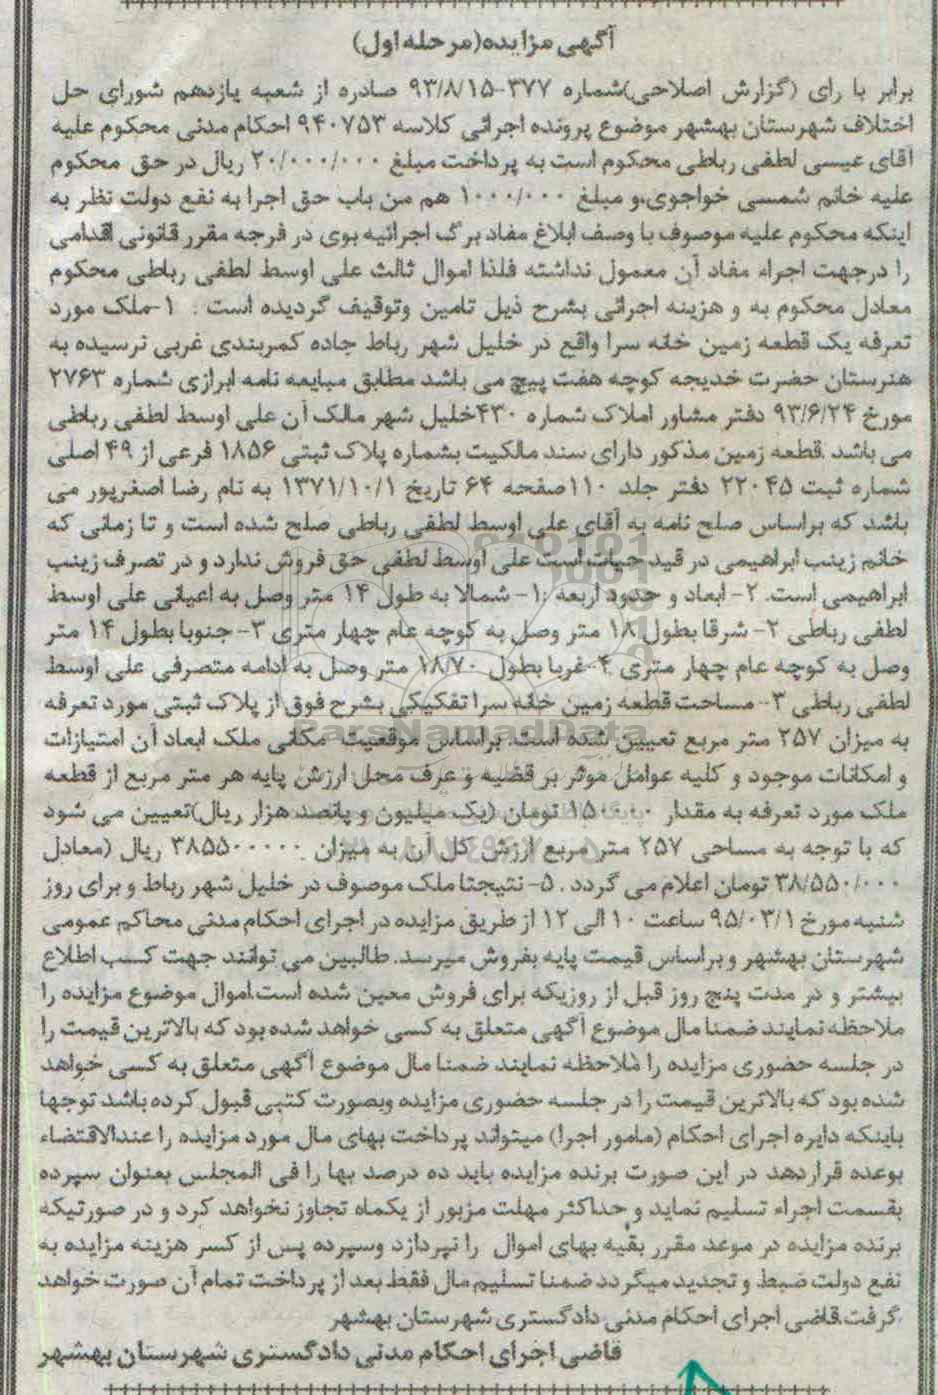 آگهی مزایده(مرحله اول)
برابر با رای (گزارش اصلاحی)شماره ۳۷۷-۹۳/۸/۱۵ صادره از شعبه یازدهم شورای حل
اختلاف شهرستان بهشهر موضوع پرونده اجرائی کلاسه ۹۴۰۷۵۳ احکام مدنی محکوم علیه
آقای عیسی لطفی رباطی محکوم است به پرداخت مبلغ ۲۰/۰۰۰/۰۰۰ ریال در حق محکوم
علیه خانم شمسی خواجوی،و مبلغ ۱۰۰۰/۰۰۰ هم من باب حق اجرا به نفع دولت نظر به
اینکه محکوم علیه موصوف با وصف ابلاغ مفاد برگ اجرائیه بوی در فرجه مقرر قانونی اقدامی
را درجهت اجراء مفاد آن معمول نداشته فلذا اموال ثالث علی اوسط لطفی رباطی محکوم
معادل محکوم به و هزینه اجرائی بشرح ذیل تامین وتوقیف گردیده است : ۱-ملک مورد
تعرفه یک قطعه زمین خانه سرا واقع در خلیل شهر رباط جاده کمربندی غربی نرسیده به
هنرستان حضرت خدیجه کوچه هفت پیچ می باشد مطابق مبایعه نامه ابرازی شماره ۲۷۶۳
مورخ ۹۳/۶/۲۴ دفتر مشاور املاک شماره ۴۳۰خلیل شهر مالک آن علی اوسط لطفی رباطی
می باشد .قطعه زمین مذکور دارای سند مالکیت بشماره پلاک ثبتی ۱۸۵۶ فرعی از ۴۹ اصلی
شماره ثبت ۲۲۰۴۵ دفتر جلد ۱۱۰صفحه ۶۴ تاریخ ۱۳۷۱/۱۰/۱ به نام رضا اصغرپور می
باشد که براساس صلح نامه به آقای علی اوسط لطفی رباطی صلح شده است و تا زمانی که
خانم زینب ابراهیمی در قید حیات است علی اوسط لطفی حق فروش ندارد و در تصرف زینب
ابراهیمی است. ۲- ابعاد و حدود اربعه :۱- شمالا به طول ۱۴ متر وصل به اعیانی علی اوسط
لطفی رباطی ۲- شرقا بطول ۱۸ متر وصل به کوچه عام چهار متری ۳- جنوبا بطول ۱۴ متر
وصل به کوچه عام چهار متری ۴-غربا بطول ۱۸/۷۰ متر وصل به ادامه متصرفی علی اوسط
لطفی رباطی ۳- مساحت قطعه زمین خانه سرا تفکیکی بشرح فوق از پلاک ثبتی مورد تعرفه
به میزان ۲۵۷ متر مربع تعیین شده است. براساس موقعیت مکانی ملک ابعاد آن امتیازات
و امکانات موجود و کلیه عوامل موثر بر قضیه و عرف محل ارزش پایه هر متر مربع از قطعه
ملک مورد تعرفه به مقدار ۱۵۰۰۰۰ تومان (یک میلیون و پانصد هزار ریال)تعیین می شود
که با توجه به مساحی ۲۵۷ متر مربع ارزش کل آن به میزان ۳۸۵۵۰۰۰۰۰ ریال (معادل
۳۸/۵۵۰/۰۰۰ تومان اعلام می گردد . ۵- نتیجتا ملک موصوف در خلیل شهر رباط و برای روز
شنبه مورخ ۹۵/۰۳/۱ ساعت ۱۰ الی ۱۲ از طریق مزایده در اجرای احکام مدنی محاکم عمومی
شهرستان بهشهر و براساس قیمت پایه بفروش میرسد. طالبین می توانند جهت کسب اطلاع
بیشتر و در مدت پنج روز قبل از روزیکه برای فروش معین شده است.اموال موضوع مزایده را
ملاحظه نمایند ضمنا مال موضوع آگهی متعلق به کسی خواهد شده بود که بالاترین قیمت را
در جلسه حضوری مزایده را ملاحظه نمایند ضمنا مال موضوع آگهی متعلق به کسی خواهد
شده بود که بالاترین قیمت را در جلسه حضوری مزایده وبصورت کتبی قبول کرده باشد توجها
باینکه دایره اجرای احکام (مامور اجرا) میتواند پرداخت بهای مال مورد مزایده را عندالاقتضاء
بوعده قراردهد در این صورت برنده مزایده باید ده درصد بها را فی المجلس بعنوان سپرده
بقسمت اجراء تسلیم نماید و حداکثر مهلت مزبور از یکماه تجاوز نخواهد کرد و در صورتیکه
برنده مزایده در موعد مقرر بقیه بهای اموال را نپردازد وسپرده پس از کسر هزینه مزایده به
نفع دولت ضبط و تجدید میگردد ضمنا تسلیم مال فقط بعد از پرداخت تمام آن صورت خواهد
گرفت.قاضی اجرای احکام مدنی دادگستری شهرستان بهشهر
قاضی اجرای احکام مدنی دادگستری شهرستان بهشهر
ParsNamadData